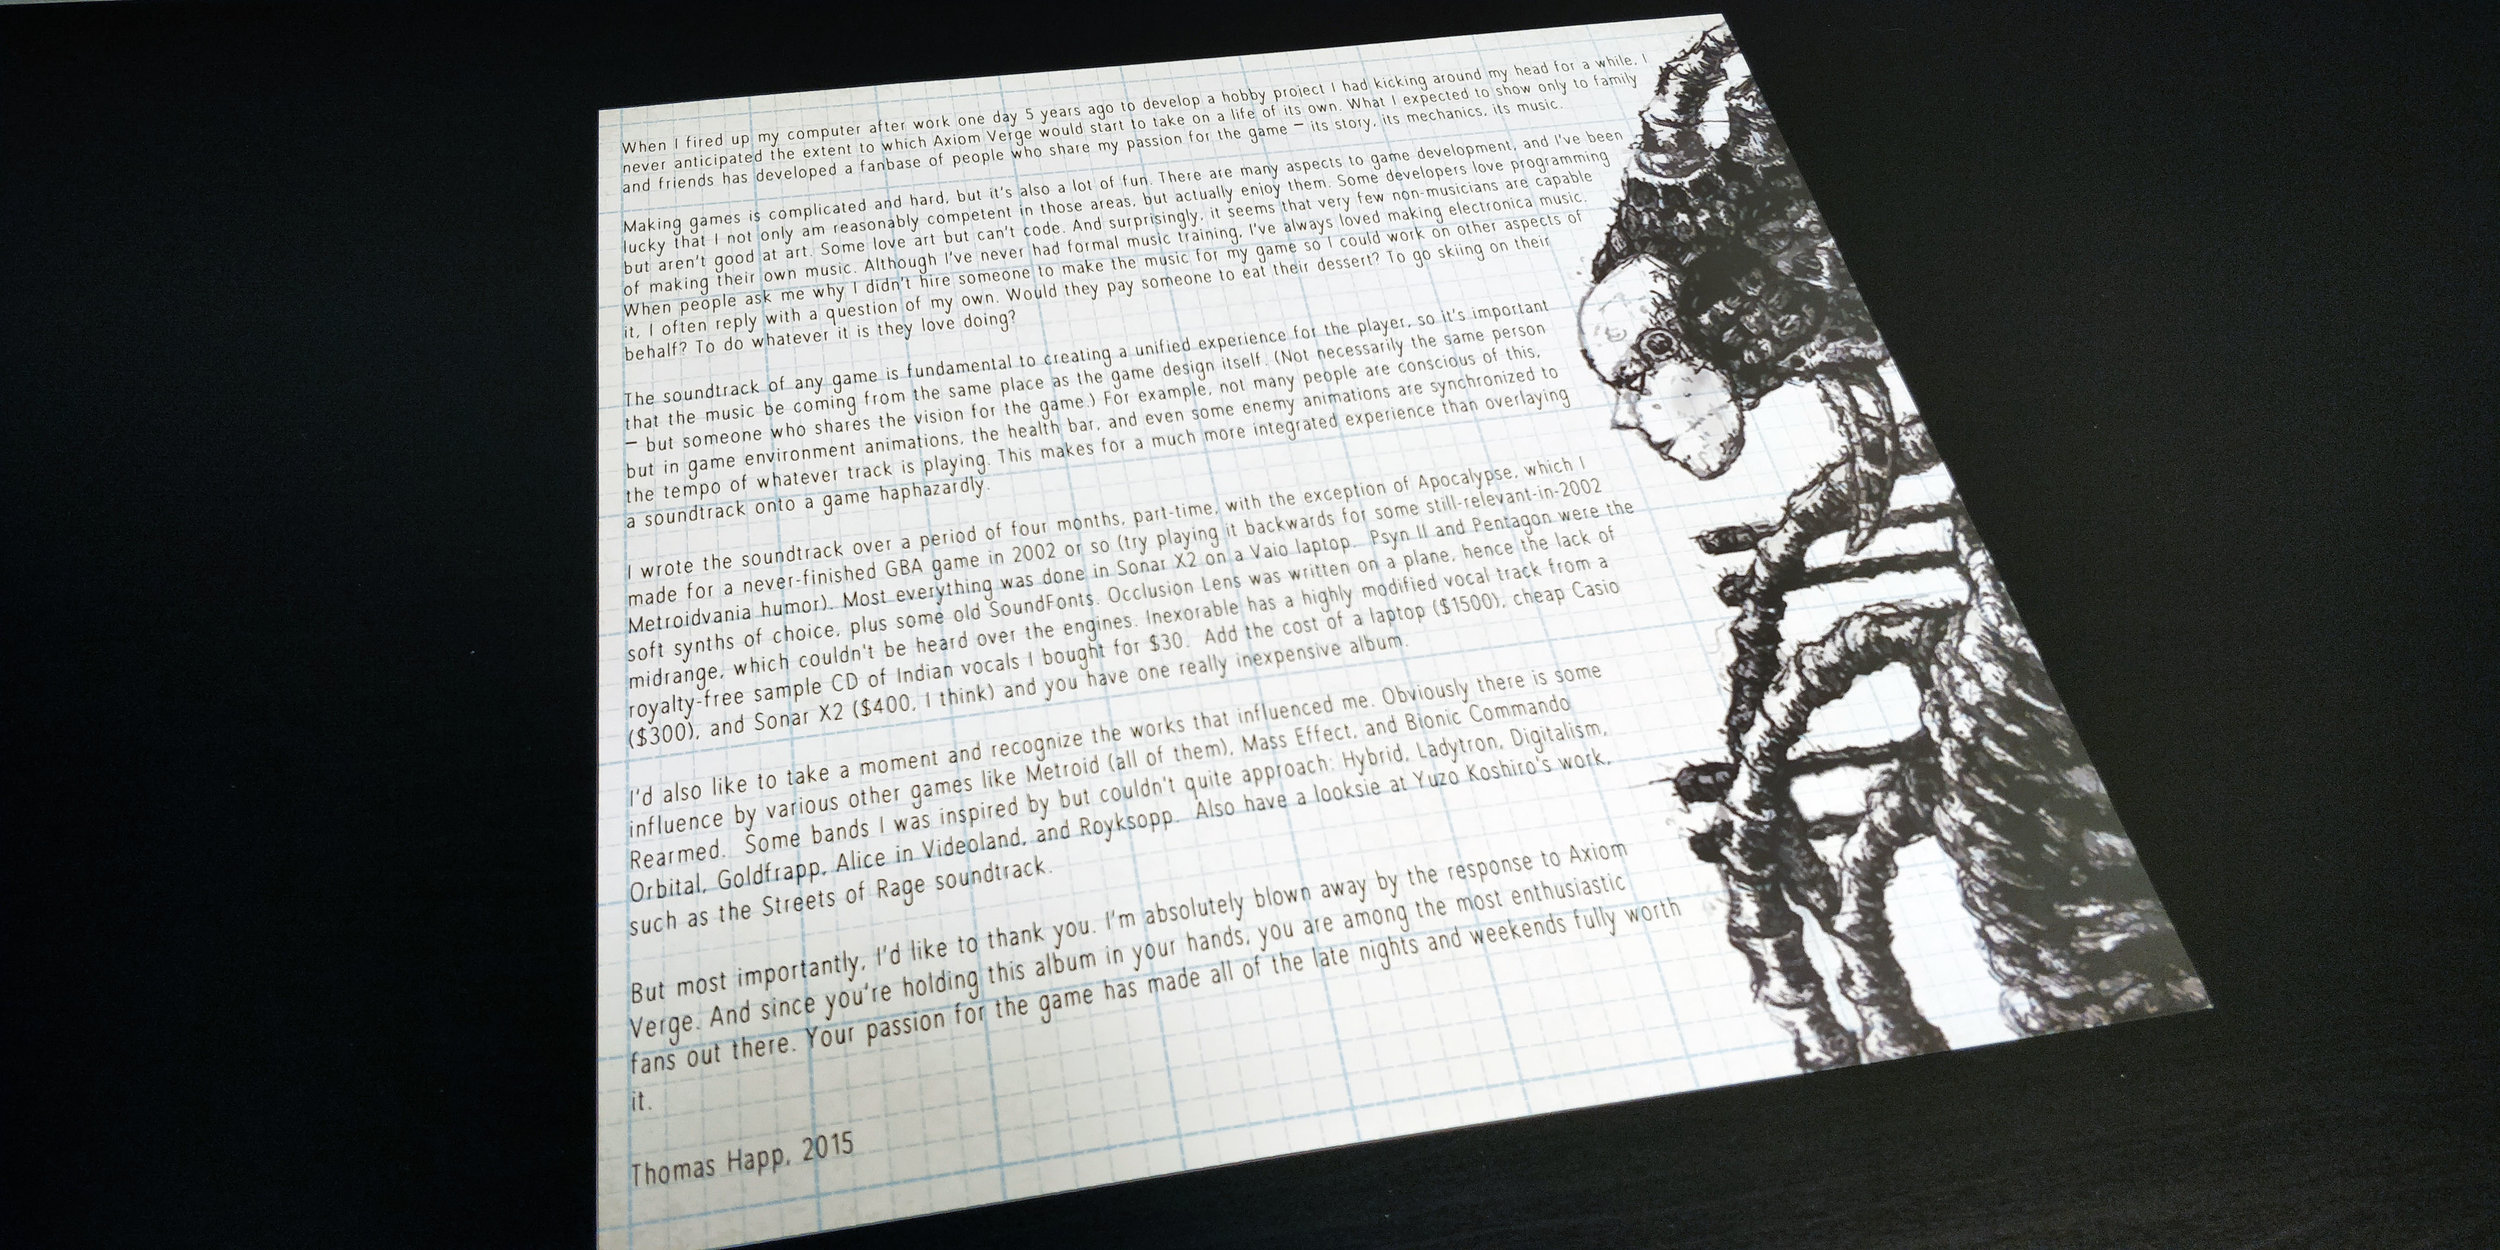 When I fired up my computer after work one day 5 years ago to develop a hobby project I had kicking around my head for a while, I
never anticipated the extent to which Axiom Verge would start to take on a life of its own. What I expected to show only to family
and friends has developed a fanbase of people who share my passion for the game – its story, its mechanics, its music.
Making games is complicated and hard, but it's also a lot of fun. There are many aspects to game development, and I've been
lucky that I not only am reasonably competent in those areas, but actually enjoy them. Some developers love programming
but aren't good at art. Some love art but can't code. And surprisingly, it seems that very few non-musicians are capable
of making their own music. Although I've never had formal music training, I've always loved making electronica music.
When people ask me why I didn't hire someone to make the music for my game so I could work on other aspects of
it, I often reply with a question of my own. Would they pay someone to eat their dessert? To go skiing on their
behalf? To do whatever it is they love doing?
The soundtrack of any game is fundamental to creating a unified experience for the player, so it's important
that the music be coming from the same place as the game design itself. (Not necessarily the same person
– but someone who shares the vision for the game.) For example, not many people are conscious of this,
but in game environment animations, the health bar, and even some enemy animations are synchronized to
the tempo of whatever track is playing. This makes for a much more integrated experience than overlaying
a soundtrack onto a game haphazardly.
I wrote the soundtrack over a period of four months, part-time, with the exception of Apocalypse, which I
made for a never-finished GBA game in 2002 or so (try playing it backwards for some still-relevant-in-2002
Metroidvania humor). Most everything was done in Sonar X2 on a Vaio laptop. Psyn II and Pentagon were the
soft synths of choice, plus some old SoundFonts. Occlusion Lens was written on a plane, hence the lack of
midrange, which couldn't be heard over the engines. Inexorable has a highly modified vocal track from a
royalty-free sample CD of Indian vocals I bought for $30. Add the cost of a laptop ($1500), cheap Casio
($300), and Sonar X2 ($400, I think) and you have one really inexpensive album.
I'd also like to take a moment and recognize the works that influenced me. Obviously there is some
influence by various other games like Metroid (all of them), Mass Effect, and Bionic Commando
Rearmed. Some bands I was inspired by but couldn't quite approach: Hybrid, Ladytron, Digitalism,
Orbital, Goldfrapp, Alice in Videoland, and Royksopp. Also have a looksie at Yuzo Koshiro's work,
such as the Streets of Rage soundtrack.
But most importantly, I'd like to thank you. I'm absolutely blown away by the response to Axiom
Verge. And since you're holding this album in your hands, you are among the most enthusiastic
fans out there. Your passion for the game has made all of the late nights and weekends fully worth
it.
Thomas Happ, 2015